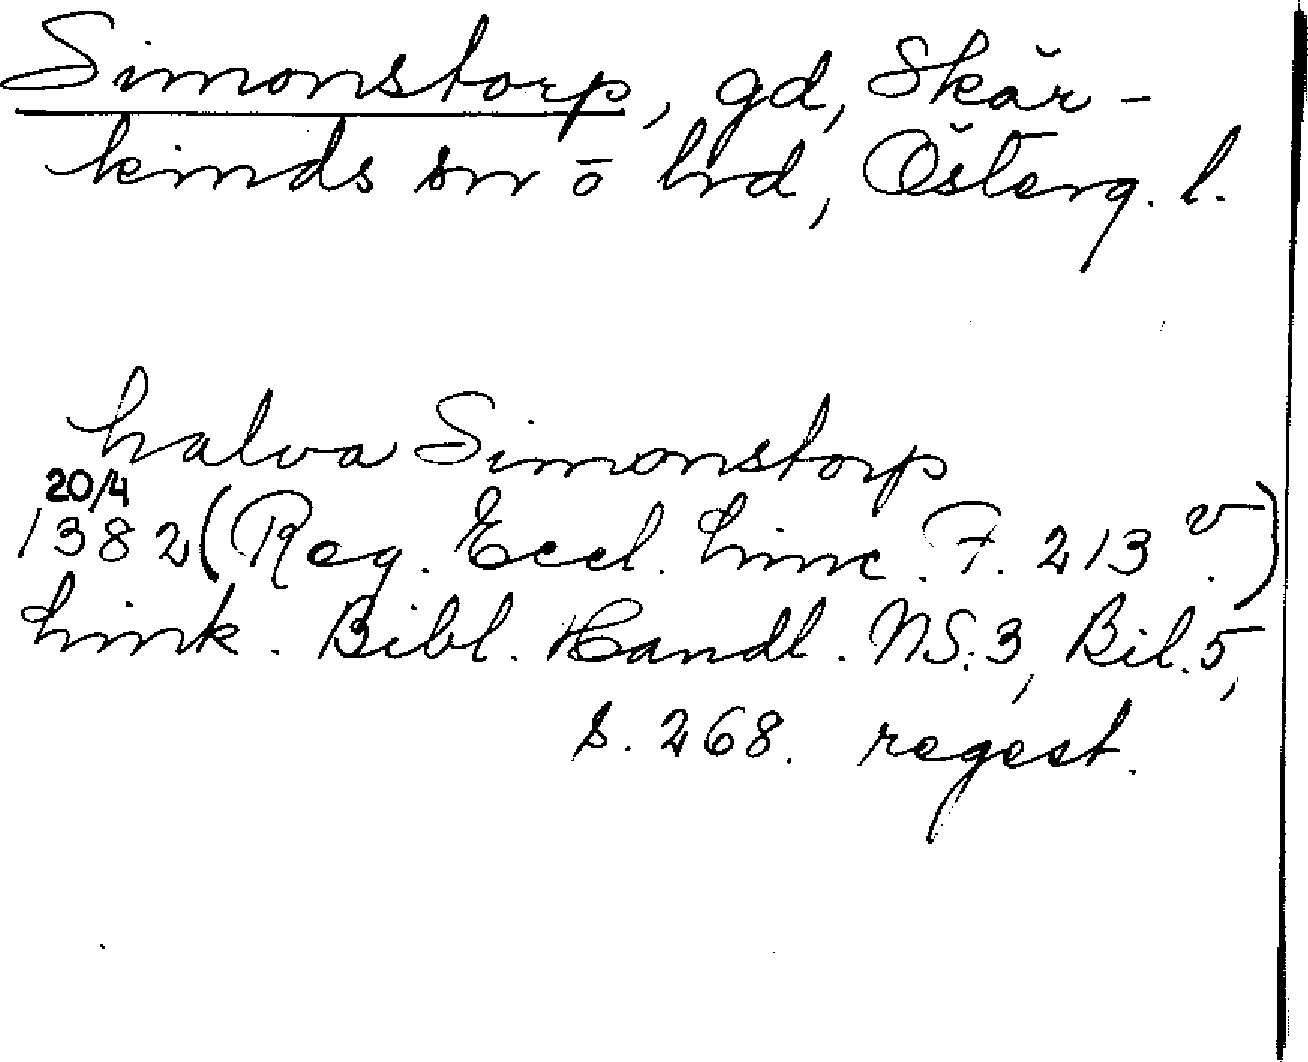 Simonstorp, gd, Skär-
kinds sn ō hd, Österg. l.
halva Simonstorp
20/4
1382 (Reg. Eccl. Linc. F. 213 v.)
Link. Bibl. Handl. NS. 3, Bil. 5,
s. 268. regest.